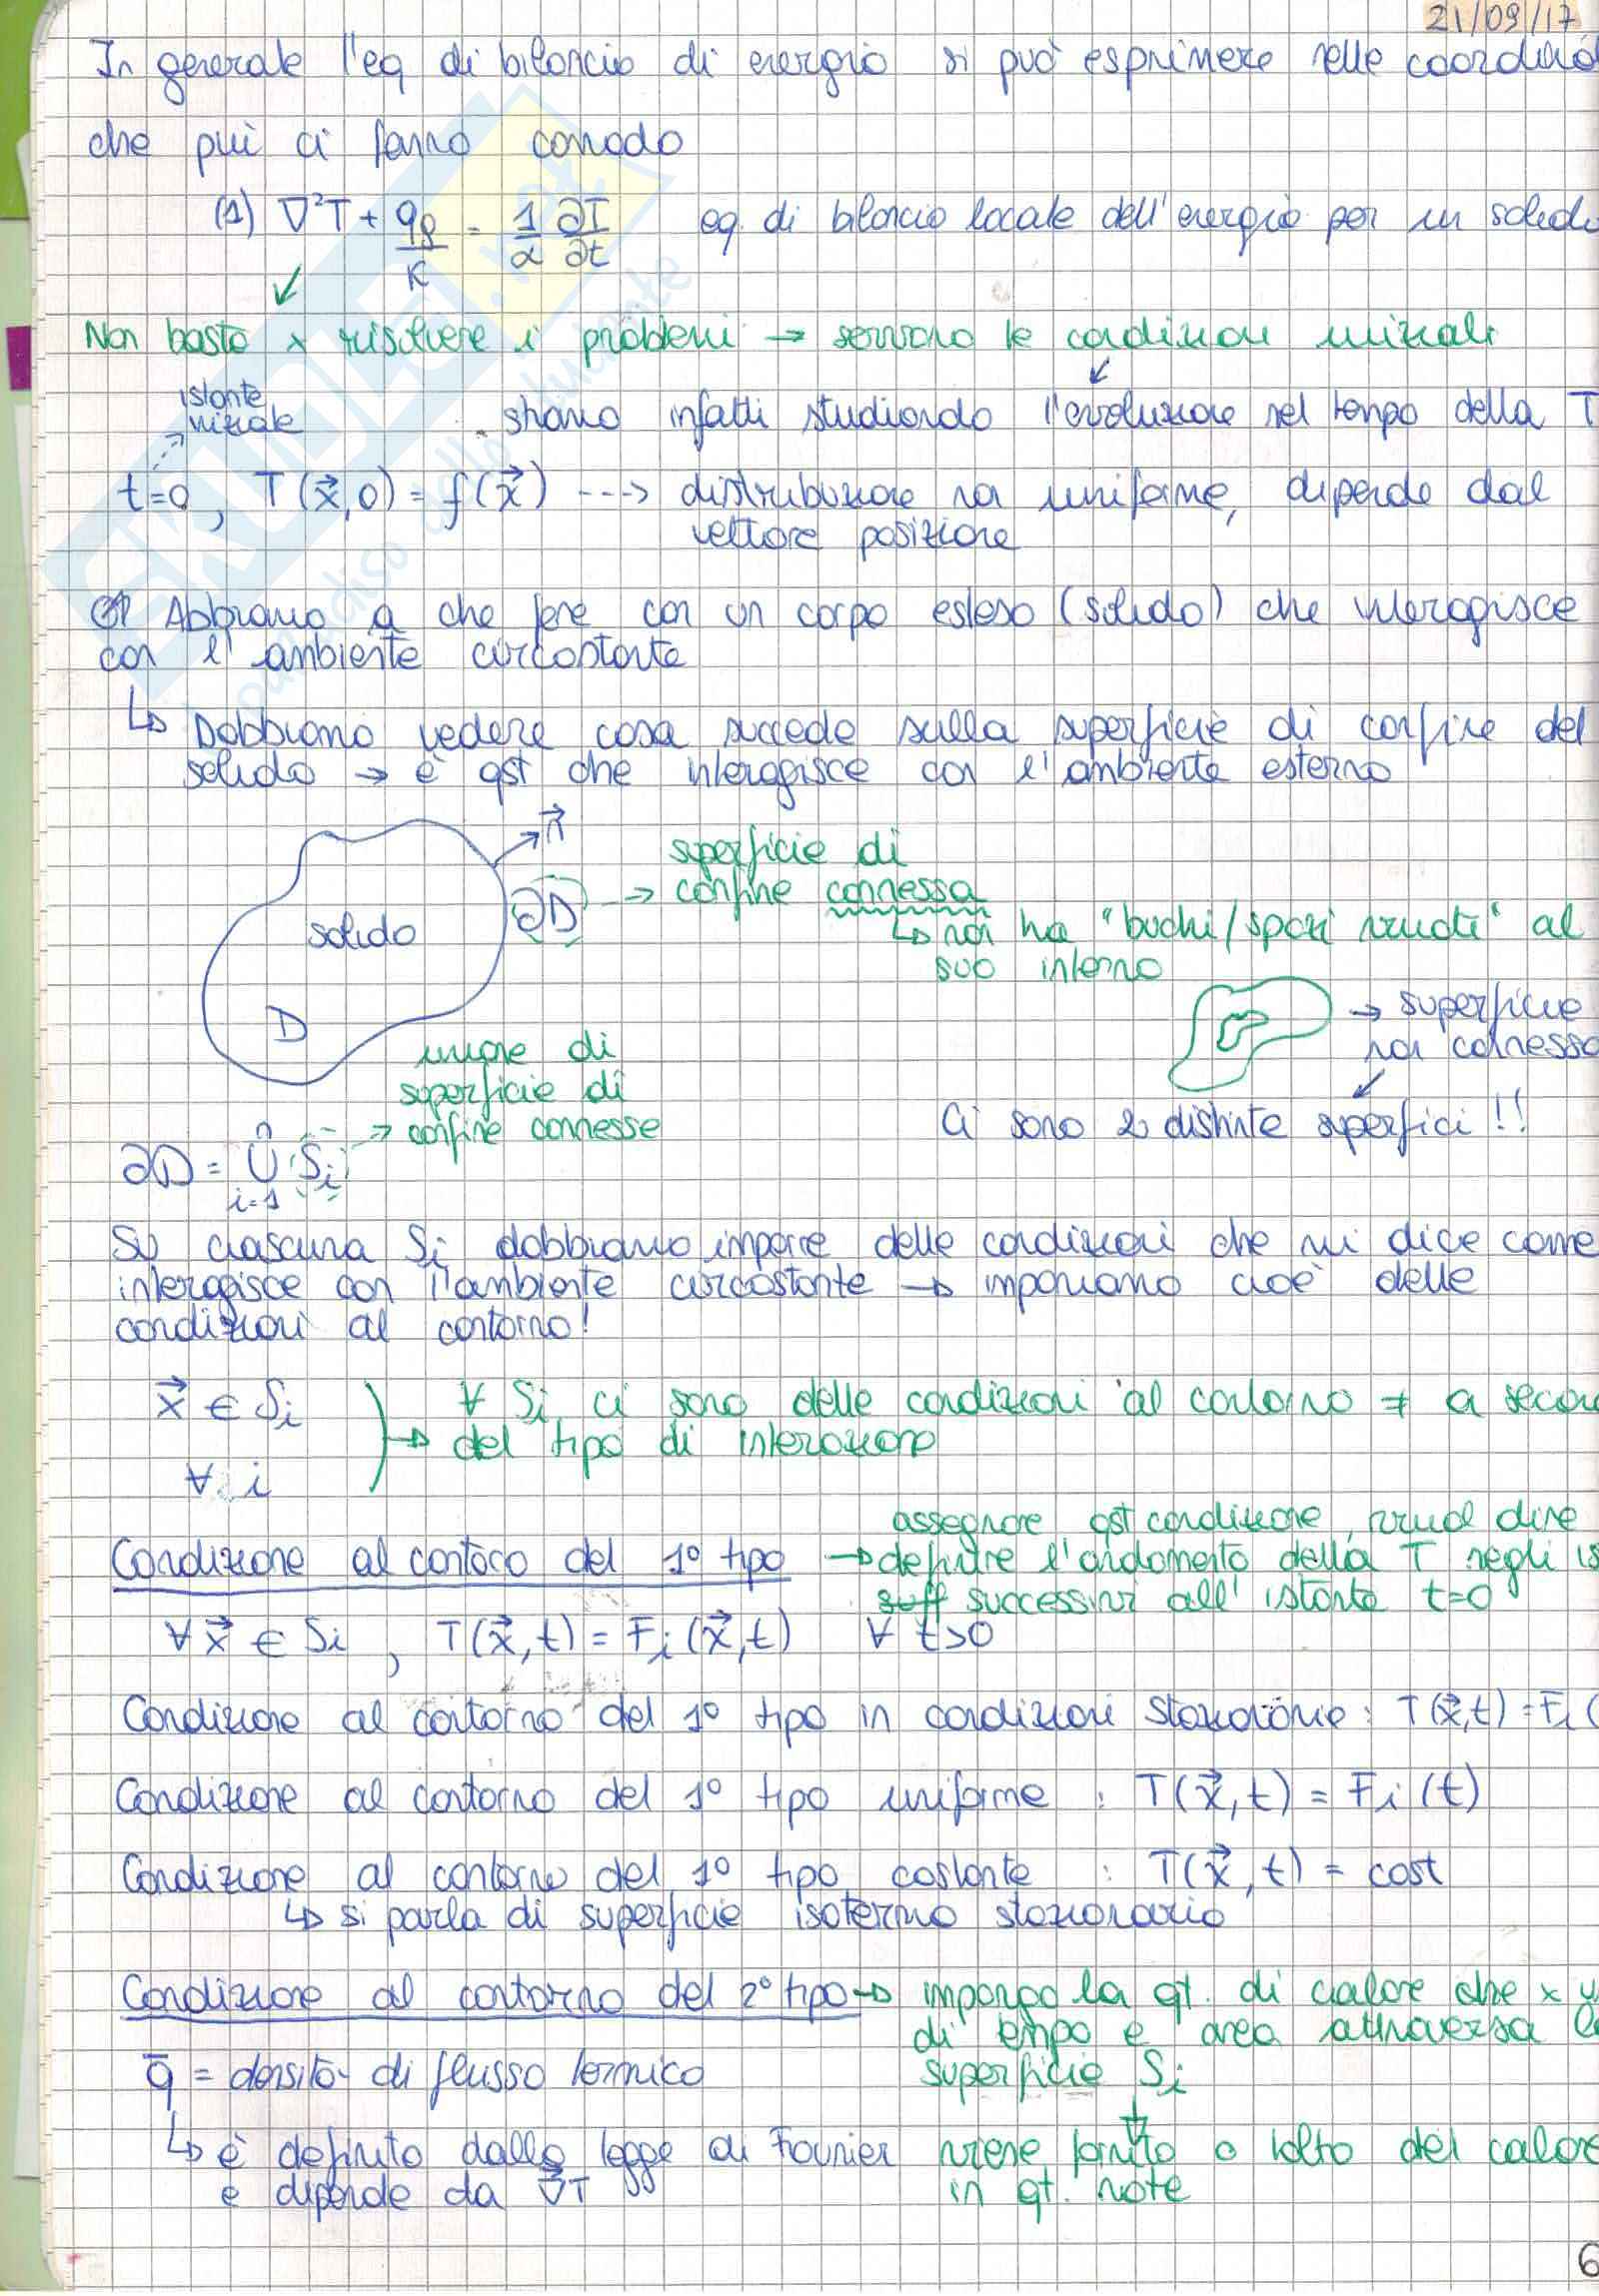 21/09/17
In generale l'eq di bilancio di energia si può esprimere nelle coordina
che più ci fanno comodo
(1) ∇²T + qg/K = 1/α ∂T/∂t eq. di bilancio locale dell'energia per un solido
Non basta x risolvere i problemi → servono le condizioni iniziali
istante iniziale
stiamo infatti studiando l'evoluzione nel tempo della T
t=0, T(x⃗,0) = f(x⃗) ---> distribuzione non uniforme, dipende dal
vettore posizione
Abbiamo a che fare con un corpo esteso (solido) che interagisce
con l'ambiente circostante
↳ Dobbiamo vedere cosa succede sulla superficie di confine del
solido → è qst che interagisce con l'ambiente esterno
n⃗
solido
D
∂D → superficie di
confine connessa
↳ non ha "buchi/spazi vuoti" al
suo interno
→ superficie
non connessa
Ci sono 2 distinte superfici!!
unione di
superficie di
confine connesse
∂D = ⋃ⁿᵢ₌₁ Si
Su ciascuna Si dobbiamo imporre delle condizioni che mi dice come
interagisce con l'ambiente circostante → imponiamo cioè delle
condizioni al contorno!
x⃗ ∈ Si
∀ i
→ ∀ Si ci sono delle condizioni al contorno ≠ a secon
del tipo di interazione
Condizione al contoco del 1° tipo → assegnare qst condizione, vuol dire
definire l'andamento della T negli is
suff successivi all'istante t=0
∀ x⃗ ∈ Si , T(x⃗,t) = Fi(x⃗,t) ∀ t>0
Condizione al contorno del 1° tipo in condizioni stazionarie: T(x⃗,t) = Fi(
Condizione al contorno del 1° tipo uniforme : T(x⃗,t) = Fi(t)
Condizione al contorno del 1° tipo costante : T(x⃗,t) = cost
↳ si parla di superficie isoterma stazionaria
Condizione al contorno del 2° tipo → impongo la qt. di calore che x u
di tempo e area attraversa la
superficie Si
q̄ = densità di flusso termico
↳ è definito dalla legge di Fourier
e dipende da ∇⃗T
viene fornito o tolto del calore
in qt. note
6
SKUOLA.net
paradiso dello studente